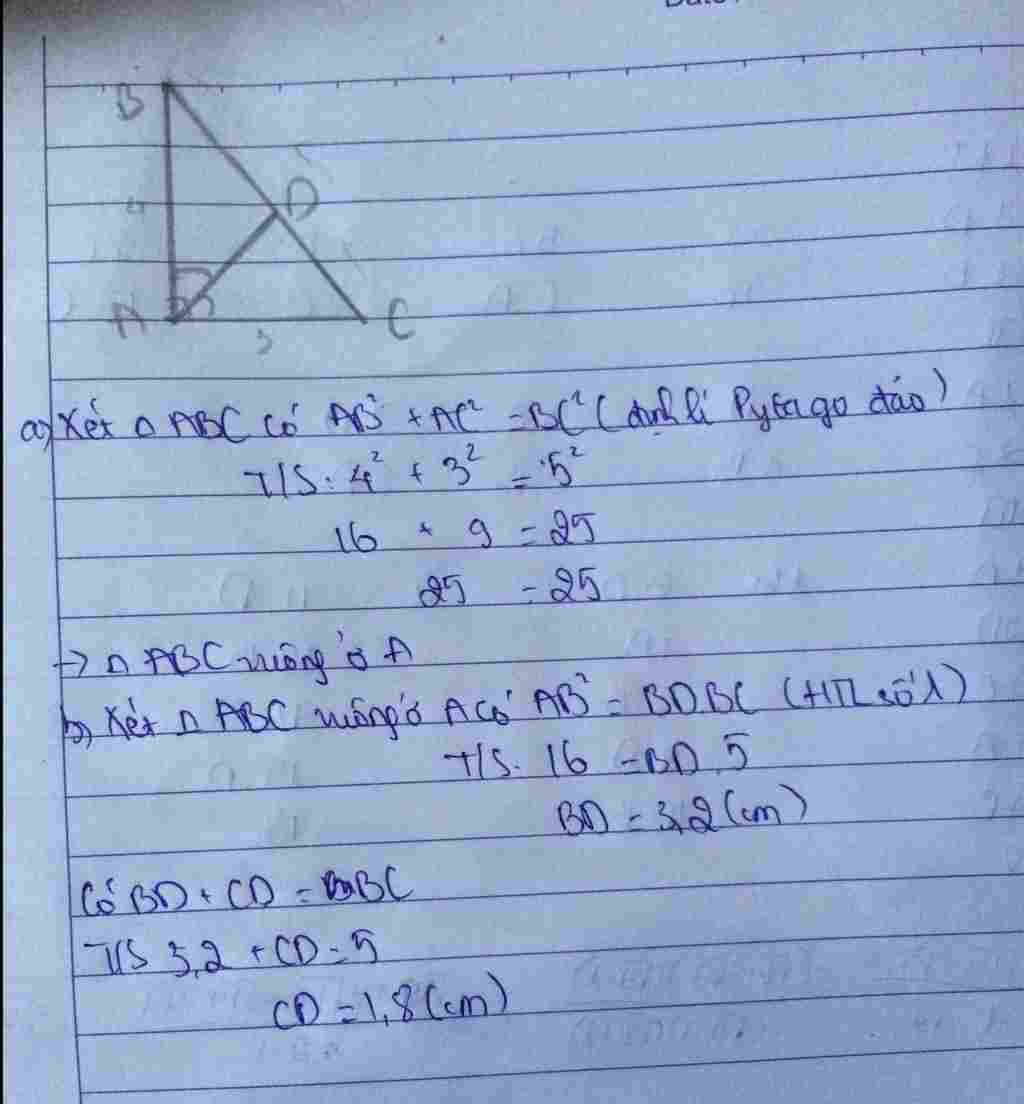 B
D
4
A
3
C
a) Xét Δ ABC có AB² + AC² = BC² (định lí Pytago đảo)
T/S: 4² + 3² = 5²
16 + 9 = 25
25 = 25
→ Δ ABC vuông ở A
b) Xét Δ ABC vuông ở A có AB² = BD.BC (HTL số 1)
T/S. 16 = BD.5
BD = 3,2 (cm)
Có BD + CD = BC
T/S 3,2 + CD = 5
CD = 1,8 (cm)